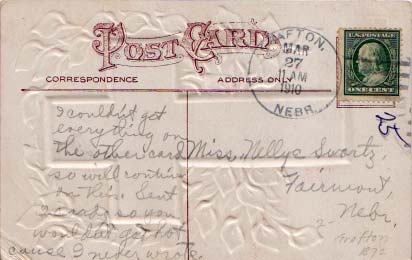 POST CARD
CORRESPONDENCE
ADDRESS ONLY
GRAFTON,
MAR
27
AM
1910
NEBR.
U.S. POSTAGE
ONE CENT
25
I couldn't get
everything on
the other card
so will continue
on this. Sent
2 cards so you
wouldn't get hot
cause I never wrote.
Miss. Nellye Swartz,
Fairmont,
Nebr.
Grafton